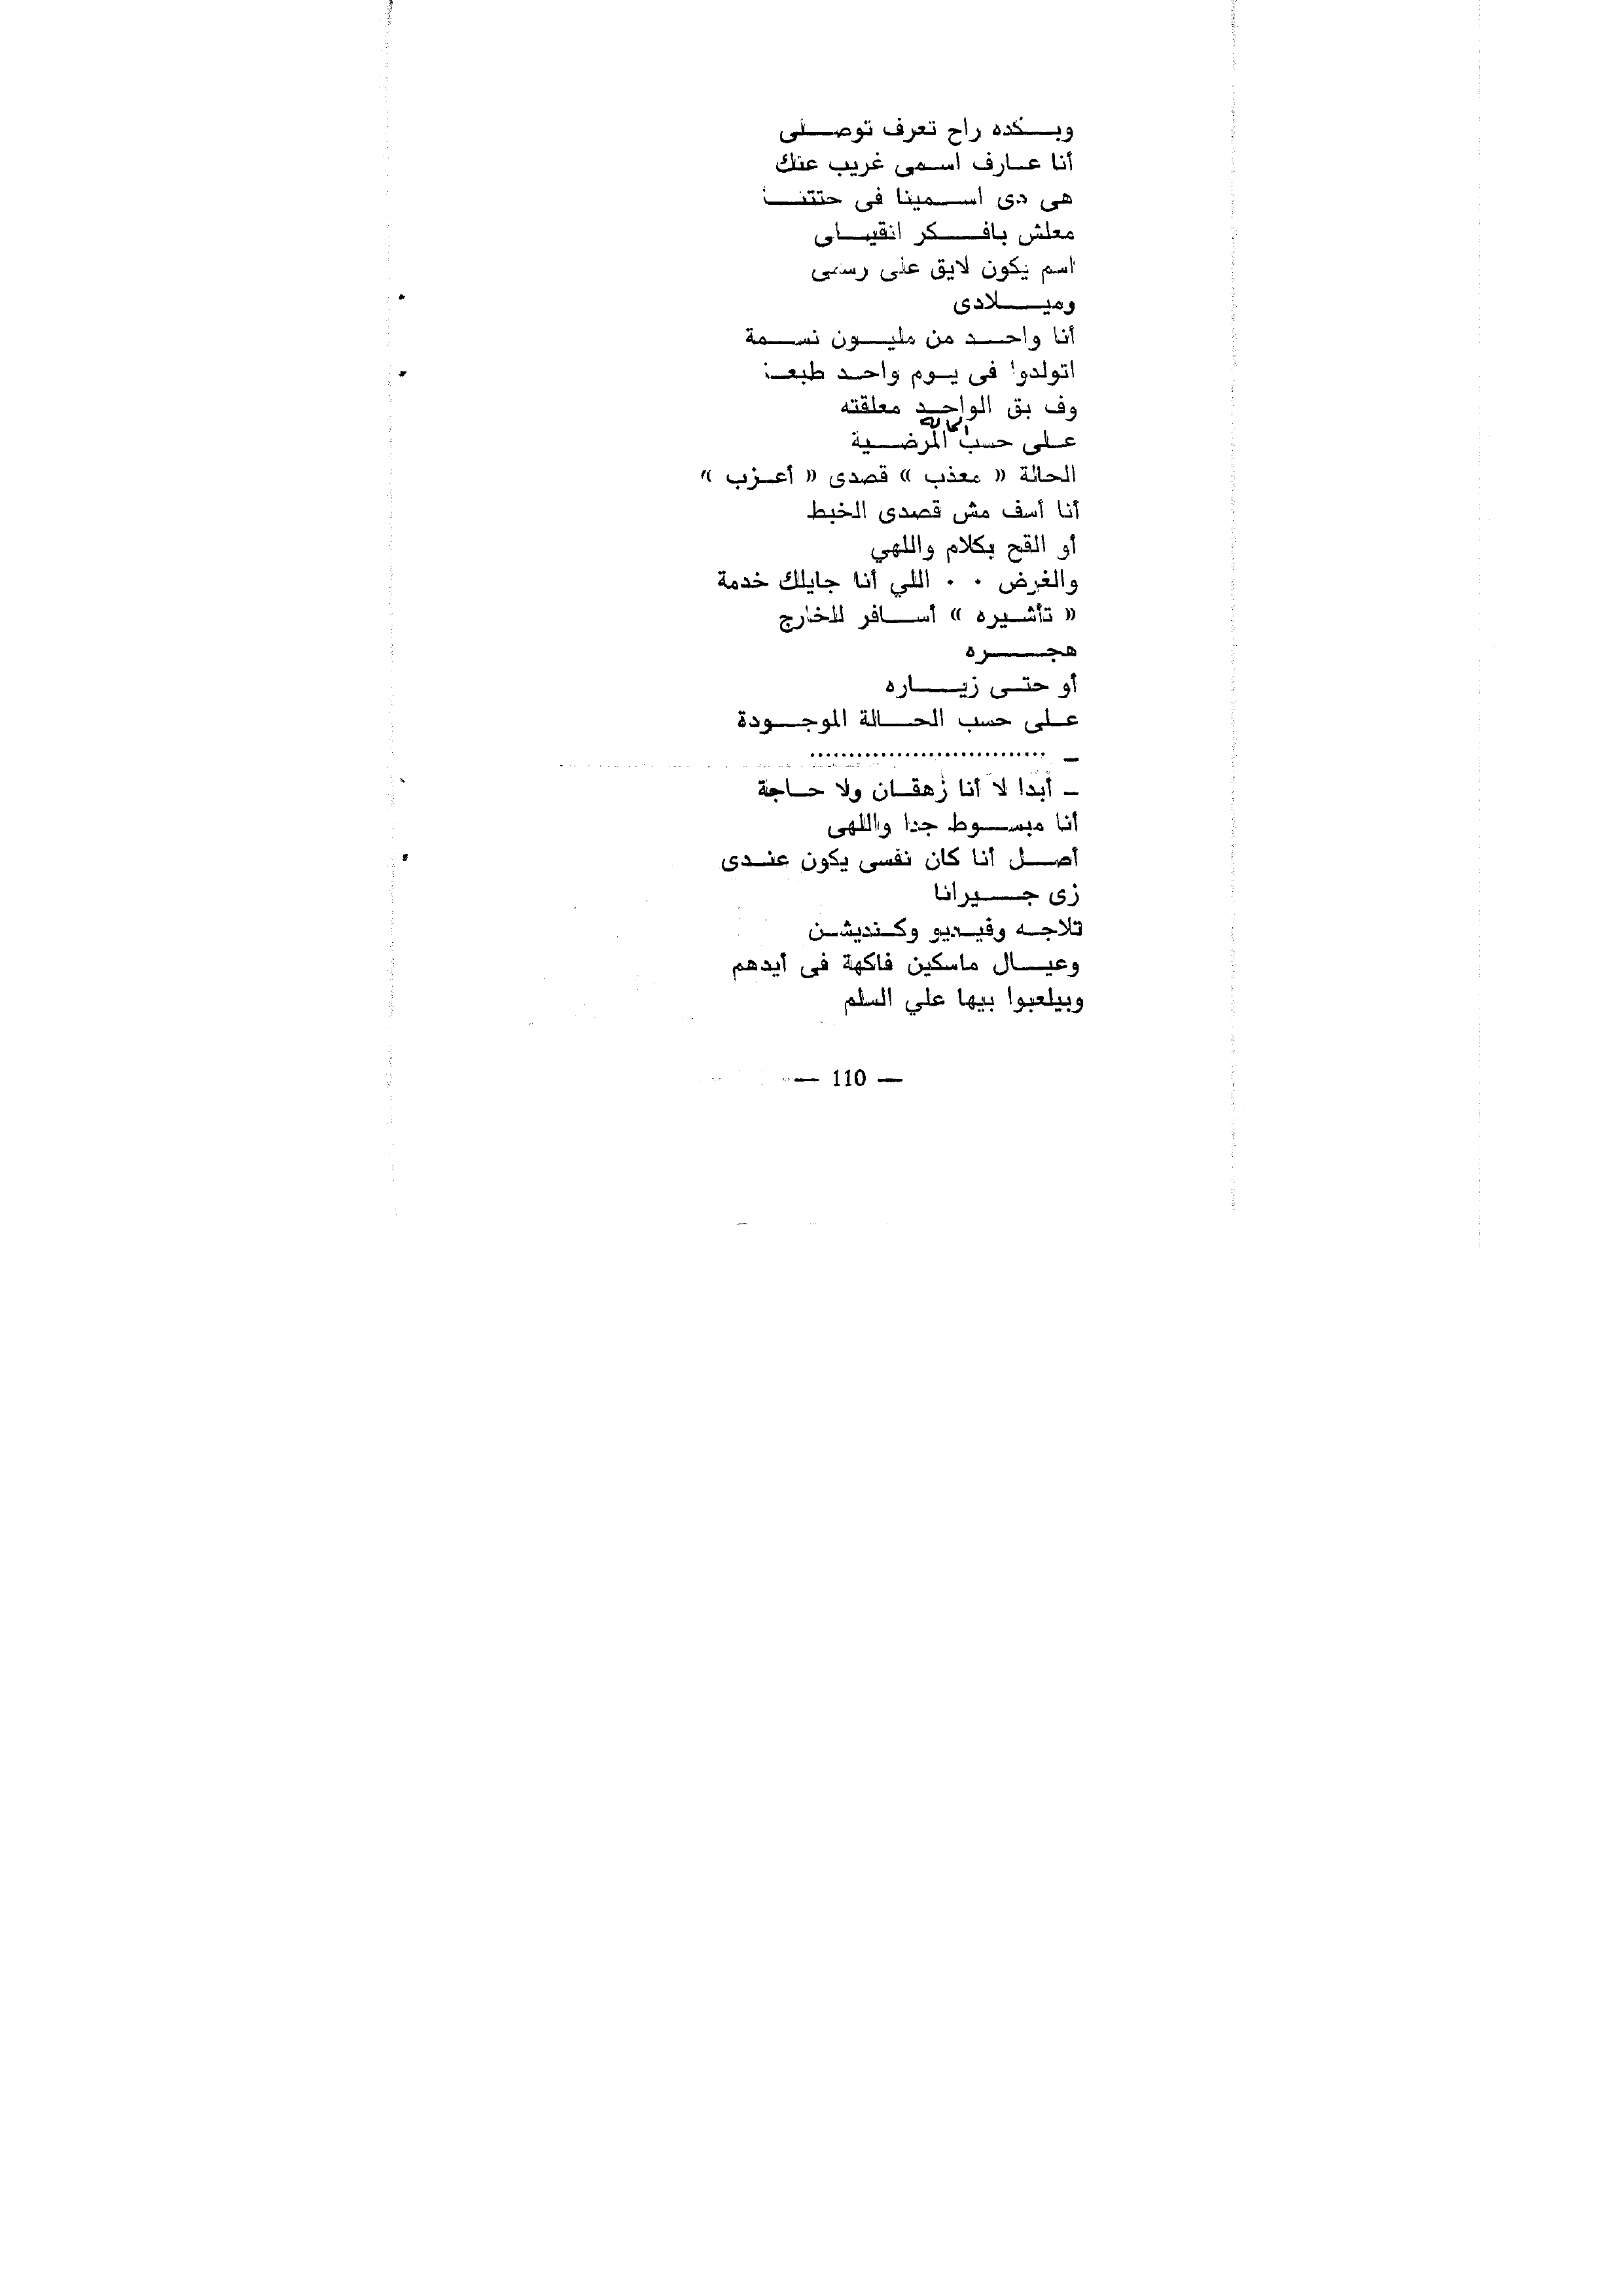 وبكده راح تعرف توصلى
أنا عارف اسمى غريب عنك
هى دى اسمينا فى حتتنا
معلش بافكر انقيلى
اسم يكون لايق على رسمى
وميلادى
أنا واحد من مليون نسمة
اتولدوا فى يوم واحد طبعا
وف بق الواحد معلقته
على حسب الحالة المرضية
الحالة « معذب » قصدى « أعزب »
أنا أسف مش قصدى الخبط
أو القح بكلام واللهي
والغرض ٠٠ اللي أنا جايلك خدمة
« تأشيره » أسافر للخارج
هجره
أو حتى زياره
على حسب الحالة الموجودة
ـ ..............................
ـ أبدا لا أنا زهقان ولا حاجة
أنا مبسوط جدا واللهى
أصل أنا كان نفسى يكون عندى
زى جيرانا
تلاجه وفيديو وكنديشن
وعيال ماسكين فاكهة فى أيدهم
وبيلعبوا بيها علي السلم
— 110 —